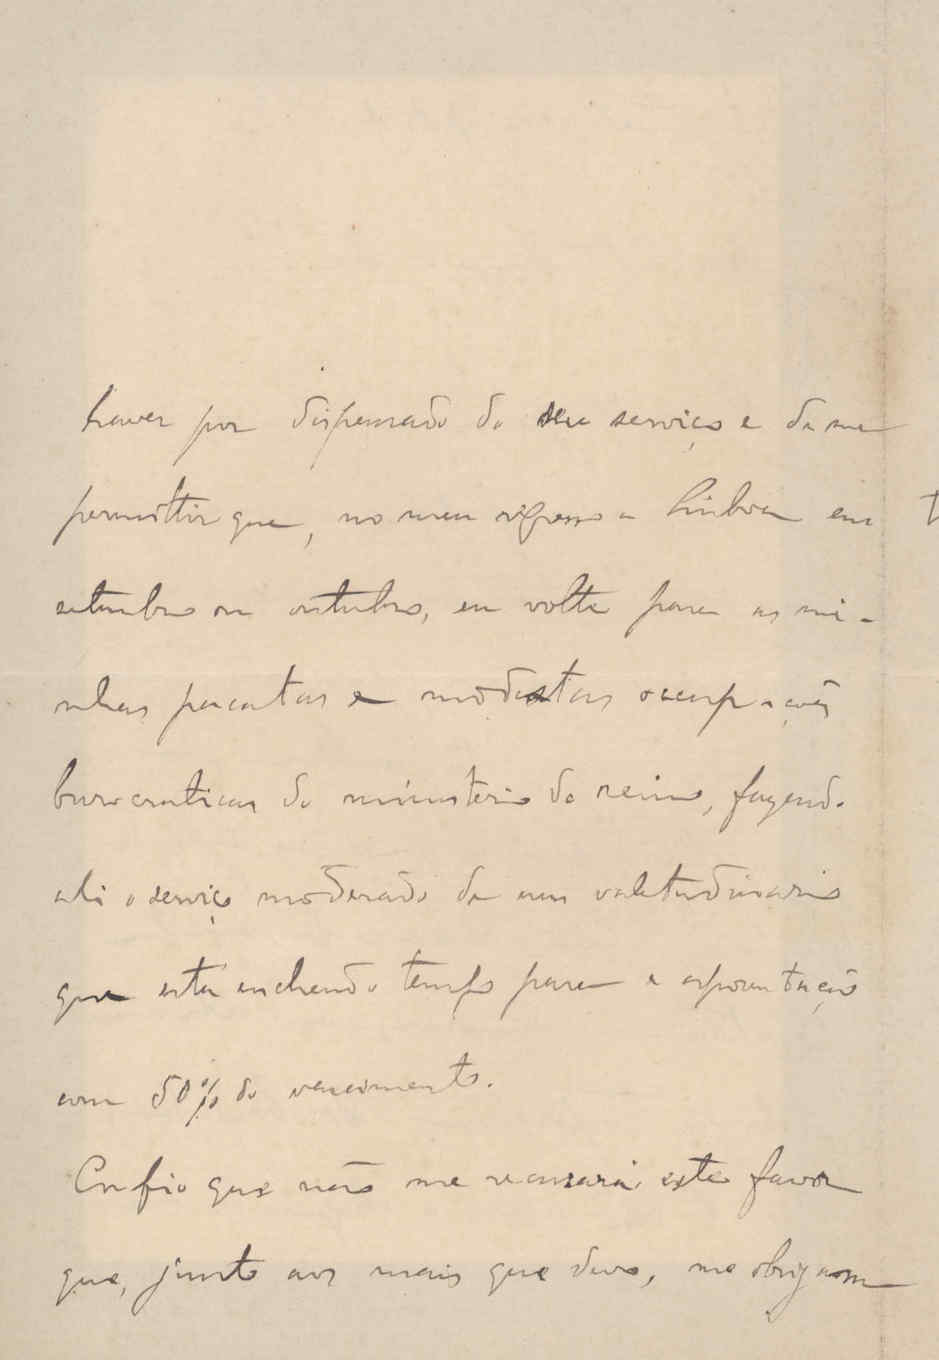 haver por dispensado do seu serviço e de me
permittir que, no meu regresso a Lisboa em
setembro ou outubro, eu volte para as mi-
nhas pacatas e modestas occupações
burocraticas do ministerio do reino, fazendo
ali o serviço moderado de um valetudinario
que está enchendo tempo para a aposentação
com 50% do vencimento.
Confio que não me recusará este favor
que, junto aos mais que devo, me obrigam